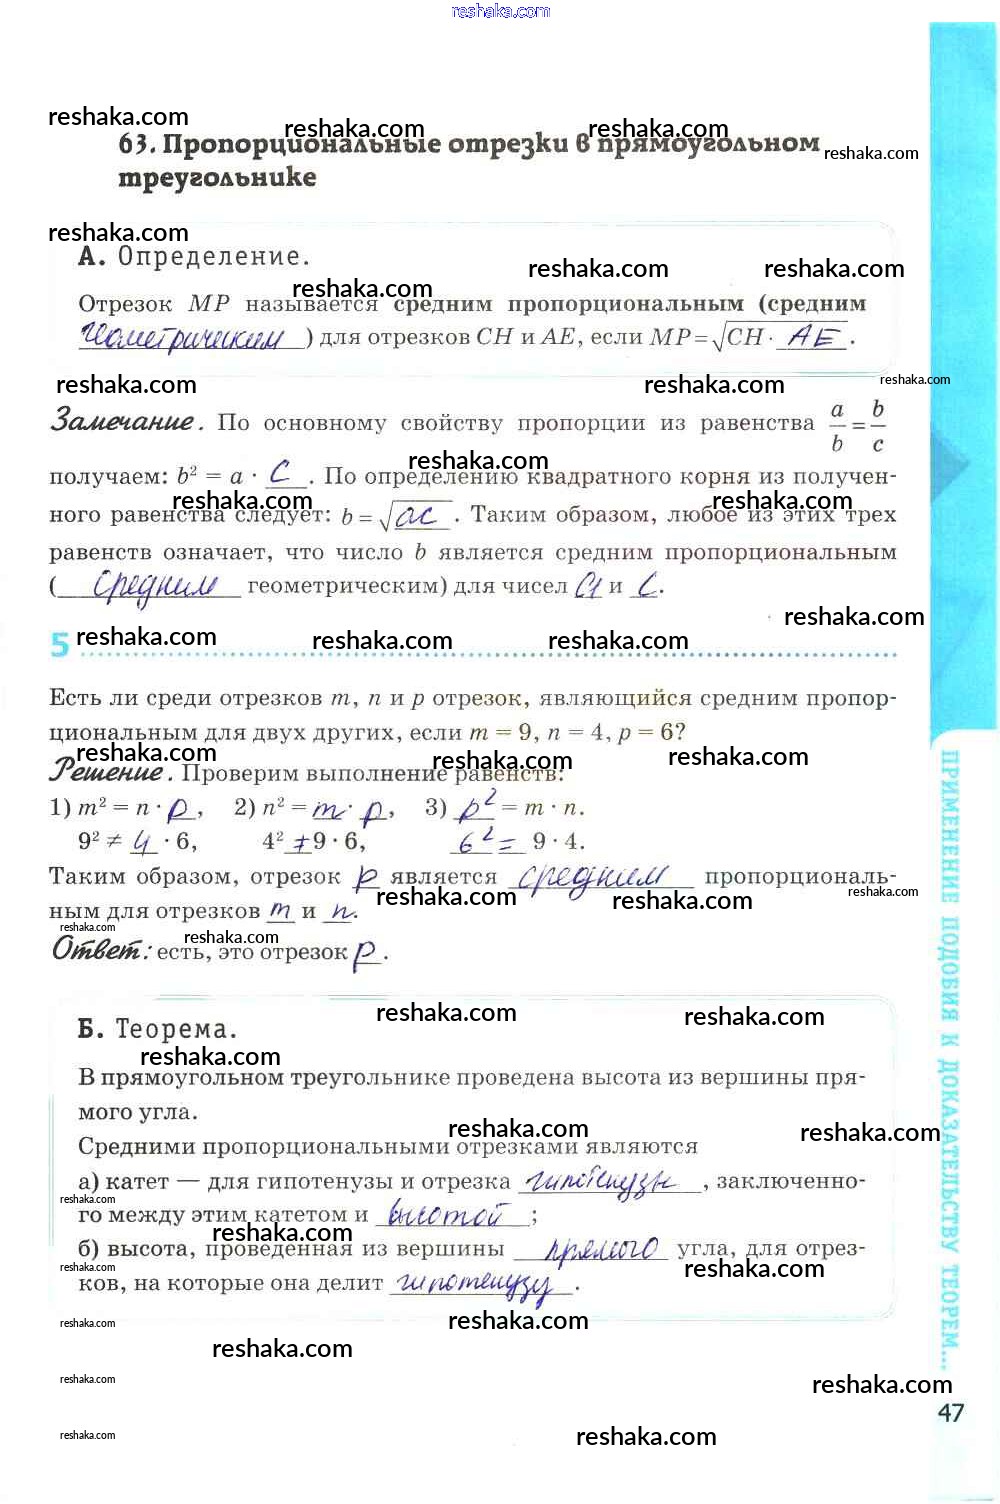 reshaka.com
reshaka.com
reshaka.com
reshaka.com
63. Пропорциональные отрезки в прямоугольном
reshaka.com
треугольнике
reshaka.com
А. Определение.
reshaka.com
reshaka.com
reshaka.com
Отрезок MP называется средним пропорциональным (средним
геометрическим) для отрезков CH и AE, если MP=√CH · AE.
reshaka.com
reshaka.com
reshaka.com
Замечание. По основному свойству пропорции из равенства a/b = b/c
reshaka.com
получаем: b² = a · c. По определению квадратного корня из получен-
reshaka.com
reshaka.com
ного равенства следует: b = √ac. Таким образом, любое из этих трех
равенств означает, что число b является средним пропорциональным
(средним геометрическим) для чисел a и c.
reshaka.com
5
reshaka.com
reshaka.com
reshaka.com
Есть ли среди отрезков m, n и p отрезок, являющийся средним пропор-
циональным для двух других, если m = 9, n = 4, p = 6?
reshaka.com
reshaka.com
reshaka.com
Решение. Проверим выполнение равенств:
1) m² = n · p, 2) n² = m · p, 3) p² = m · n.
9² ≠ 4 · 6, 4² ≠ 9 · 6, 6² = 9 · 4.
Таким образом, отрезок p является средним пропорциональ-
reshaka.com
reshaka.com
reshaka.com
ным для отрезков m и n.
reshaka.com
reshaka.com
Ответ: есть, это отрезок p.
reshaka.com
reshaka.com
Б. Теорема.
reshaka.com
В прямоугольном треугольнике проведена высота из вершины пря-
мого угла.
reshaka.com
reshaka.com
Средними пропорциональными отрезками являются
а) катет — для гипотенузы и отрезка гипотенузы, заключенно-
reshaka.com
го между этим катетом и высотой;
reshaka.com
б) высота, проведенная из вершины прямого угла, для отрез-
reshaka.com
reshaka.com
ков, на которые она делит гипотенузу.
reshaka.com
reshaka.com
reshaka.com
reshaka.com
reshaka.com
reshaka.com
reshaka.com
ПРИМЕНЕНИЕ ПОДОБИЯ К ДОКАЗАТЕЛЬСТВУ ТЕОРЕМ...
47